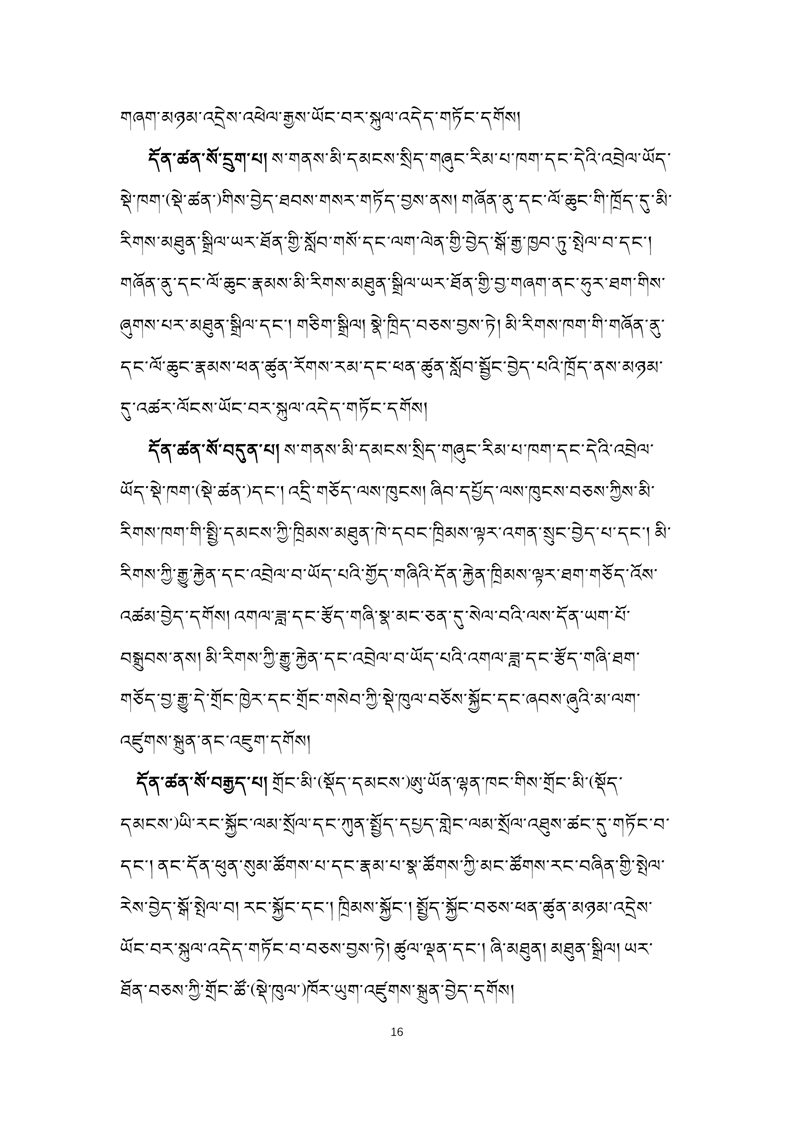 གཞག་མཉམ་འདྲེས་འཕེལ་རྒྱས་ཡོང་བར་སྐུལ་འདེད་གཏོང་དགོས།
དོན་ཚན་སོ་དྲུག་པ། ས་གནས་མི་དམངས་སྲིད་གཞུང་རིམ་པ་ཁག་དང་དེའི་འབྲེལ་ཡོད་
སྡེ་ཁག་(སྡེ་ཚན་)གིས་བྱེད་ཐབས་གསར་གཏོད་བྱས་ནས། གཞོན་ནུ་དང་ལོ་ཆུང་གི་ཁྲོད་དུ་མི་
རིགས་མཐུན་སྒྲིལ་ཡར་ཐོན་གྱི་སློབ་གསོ་དང་ལག་ལེན་གྱི་བྱེད་སྒོ་རྒྱ་ཁྱབ་ཏུ་སྤེལ་བ་དང་།
གཞོན་ནུ་དང་ལོ་ཆུང་རྣམས་མི་རིགས་མཐུན་སྒྲིལ་ཡར་ཐོན་གྱི་བྱ་གཞག་ནང་ཧུར་ཐག་གིས་
ཞུགས་པར་མཐུན་སྒྲིལ་དང་། གཅིག་སྒྲིལ། སྣེ་ཁྲིད་བཅས་བྱས་ཏེ། མི་རིགས་ཁག་གི་གཞོན་ནུ་
དང་ལོ་ཆུང་རྣམས་ཕན་ཚུན་རོགས་རམ་དང་ཕན་ཚུན་སློབ་སྦྱོང་བྱེད་པའི་ཁྲོད་ནས་མཉམ་
དུ་འཚར་ལོངས་ཡོང་བར་སྐུལ་འདེད་གཏོང་དགོས།
དོན་ཚན་སོ་བདུན་པ། ས་གནས་མི་དམངས་སྲིད་གཞུང་རིམ་པ་ཁག་དང་དེའི་འབྲེལ་
ཡོད་སྡེ་ཁག་(སྡེ་ཚན་)དང་། འདྲི་གཅོད་ལས་ཁུངས། ཞིབ་དཔྱོད་ལས་ཁུངས་བཅས་ཀྱིས་མི་
རིགས་ཁག་གི་སྤྱི་དམངས་ཀྱི་ཁྲིམས་མཐུན་ཁེ་དབང་ཁྲིམས་ལྟར་འགན་སྲུང་བྱེད་པ་དང་། མི་
རིགས་ཀྱི་རྒྱུ་རྐྱེན་དང་འབྲེལ་བ་ཡོད་པའི་གྱོད་གཞིའི་དོན་རྐྱེན་ཁྲིམས་ལྟར་ཐག་གཅོད་འོས་
འཚམ་བྱེད་དགོས། འགལ་ཟླ་དང་རྩོད་གཞི་སྣ་མང་ཅན་དུ་སེལ་བའི་ལས་དོན་ཡག་པོ་
བསྒྲུབས་ནས། མི་རིགས་ཀྱི་རྒྱུ་རྐྱེན་དང་འབྲེལ་བ་ཡོད་པའི་འགལ་ཟླ་དང་རྩོད་གཞི་ཐག་
གཅོད་བྱ་རྒྱུ་དེ་གྲོང་ཁྱེར་དང་གྲོང་གསེབ་ཀྱི་སྡེ་ཁུལ་བཅོས་སྐྱོང་དང་ཞབས་ཞུའི་མ་ལག་
འཛུགས་སྐྲུན་ནང་འཇུག་དགོས།
དོན་ཚན་སོ་བརྒྱད་པ། གྲོང་མི་(སྡོད་དམངས་)ཨུ་ཡོན་ལྷན་ཁང་གིས་གྲོང་མི་(སྡོད་
དམངས་)ཡི་རང་སྐྱོང་ལམ་སྲོལ་དང་ཀུན་སྤྱོད་དཔྱད་གླེང་ལམ་སྲོལ་འཐུས་ཚང་དུ་གཏོང་བ་
དང་། ནང་དོན་ཕུན་སུམ་ཚོགས་པ་དང་རྣམ་པ་སྣ་ཚོགས་ཀྱི་མང་ཚོགས་རང་བཞིན་གྱི་སྤེལ་
རེས་བྱེད་སྒོ་སྤེལ་བ། རང་སྐྱོང་དང་། ཁྲིམས་སྐྱོང་། སྤྱོད་སྐྱོང་བཅས་ཕན་ཚུན་མཉམ་འདྲེས་
ཡོང་བར་སྐུལ་འདེད་གཏོང་བ་བཅས་བྱས་ཏེ། ཚུལ་ལྡན་དང་། ཞི་མཐུན། མཐུན་སྒྲིལ། ཡར་
ཐོན་བཅས་ཀྱི་གྲོང་ཚོ་(སྡེ་ཁུལ་)ཁོར་ཡུག་འཛུགས་སྐྲུན་བྱེད་དགོས།
16